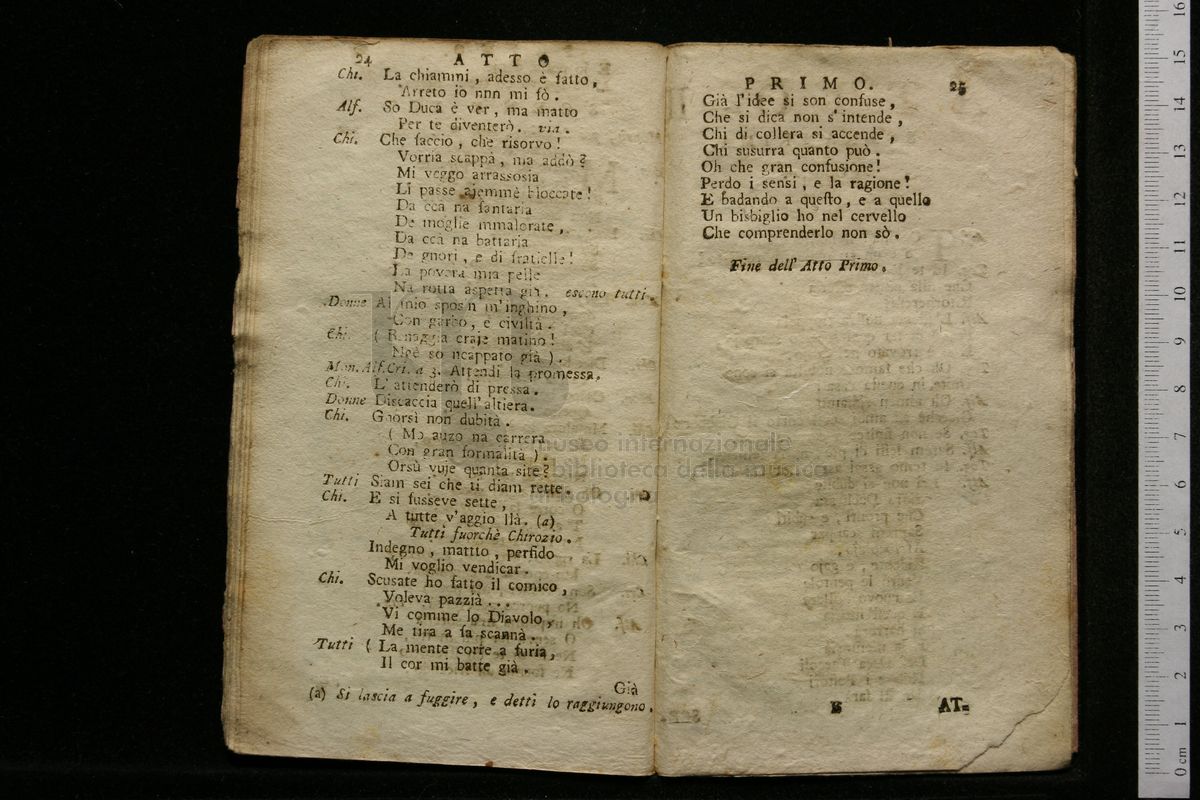 24 ATTO
Chi. La chiamini, adesso è fatto,
Arreto io nnn mi fò.
Alf. So Duca è ver, ma matto
Per te diventerò. via.
Chi. Che faccio, che risorvo!
Vorria scappà, ma addò?
Mi veggo arrassosia
Li passe ajemmè bloccate!
Da cca na fantaria
De moglie mmalorate,
Da cca na battaria
De gnori, e di fratielle!
La povera mia pelle
Na rotta aspetta già. escono tutti.
Donne Al mio sposin m'inghino,
Con garbo, e civiltà.
Chi. ( Benaggia craje matino!
Ncè so ncappato già ).
Mon. Alf. Cri. a 3. Attendi la promessa.
Chi. L'attenderò di pressa.
Donne Discaccia quell'altiera.
Chi. Gnorsì non dubità.
( Mo auzo na carrera
Con gran formalità ).
Orsù vuje quanta site?
Tutti Siam sei che ti diam rette.
Chi. E si fusseve sette,
A tutte v'aggio llà. (a)
Tutti fuorchè Chirozio.
Indegno, mattto, perfido
Mi voglio vendicar.
Chi. Scusate ho fatto il comico,
Voleva pazzià...
Vi comme lo Diavolo,
Me tira a fa scannà.
Tutti ( La mente corre a furia,
Il cor mi batte già.
Già
(a) Si lascia a fuggire, e detti lo raggiungono.
PRIMO. 25
Già l'idee si son confuse,
Che si dica non s'intende,
Chi di collera si accende,
Chi susurra quanto può.
Oh che gran confusione!
Perdo i sensi, e la ragione!
E badando a questo, e a quello
Un bisbiglio ho nel cervello
Che comprenderlo non sò.
Fine dell'Atto Primo.
B AT-
museo internazionale
biblioteca della musica
di bologna
0 cm 1 2 3 4 5 6 7 8 9 10 11 12 13 14 15 16